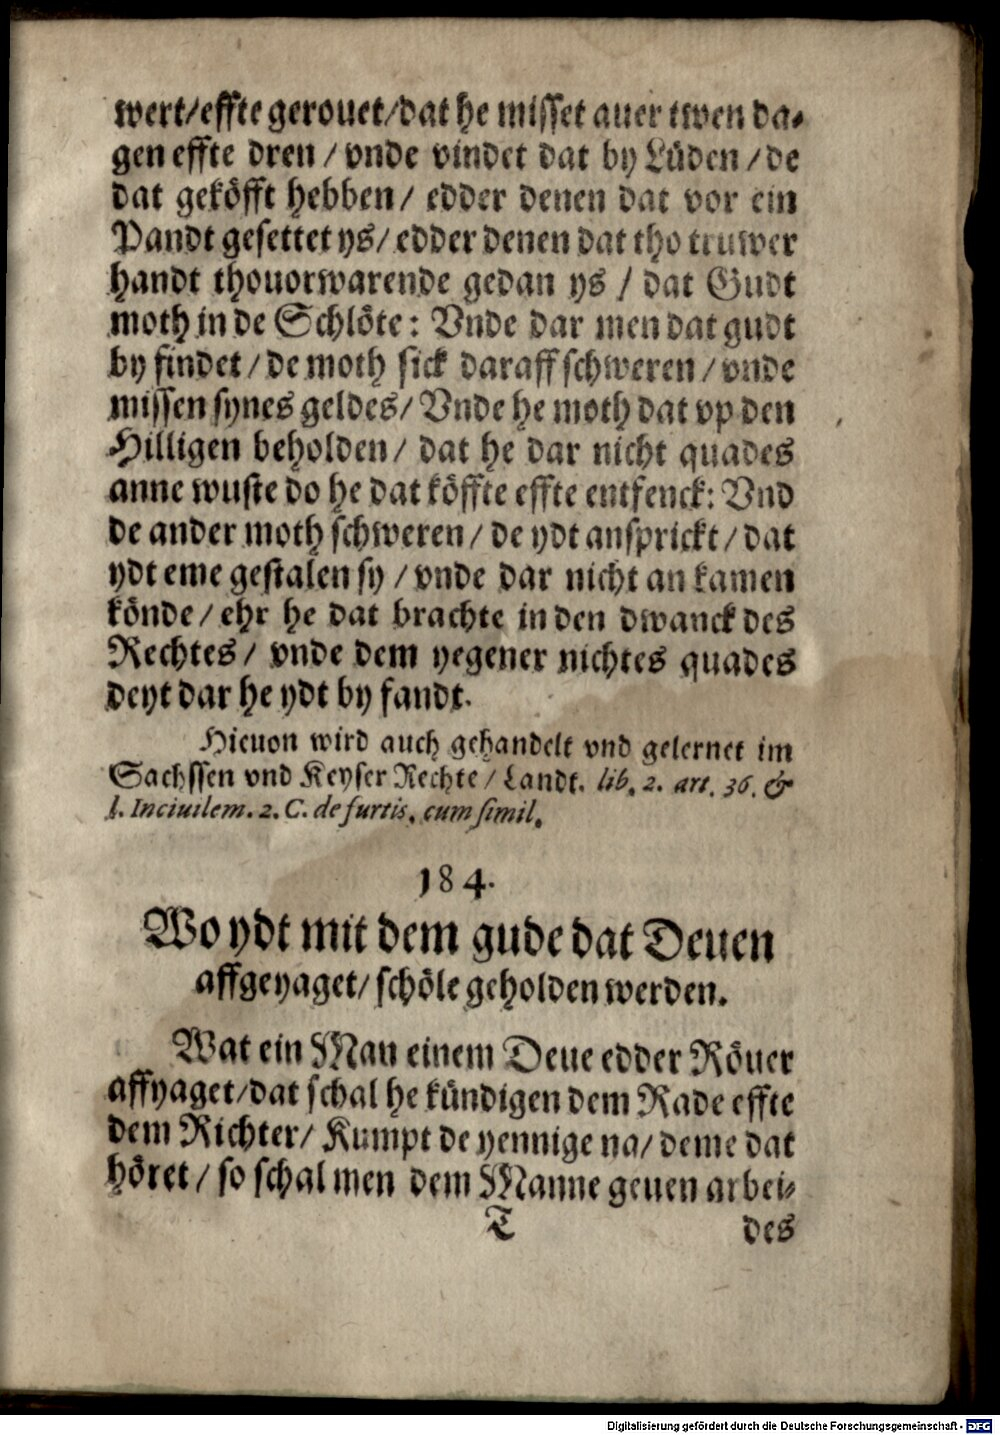 wert/effte gerouet/dat he misset auer twen da-
gen effte dren / vnde vindet dat by Lüden / de
dat geköfft hebben / edder denen dat vor ein
Pandt gesettet ys / edder denen dat tho truwer
handt thouorwarende gedan ys / dat Gudt
moth in de Schlöte : Vnde dar men dat gudt
by findet / de moth sick daraff schweren / vnde
missen synes geldes / Vnde he moth dat vp den
Hilligen beholden / dat he dar nicht quades
anne wuste do he dat köffte effte entfenck: Vnd
de ander moth schweren / de ydt ansprickt / dat
ydt eme gestalen sy / vnde dar nicht an kamen
könde / ehr he dat brachte in den dwanck des
Rechtes / vnde dem yegener nichtes quades
deyt dar he ydt by fandt.
Hieuon wird auch gehandelt vnd gelernet im
Sachssen vnd Keyser Rechte / Landt. lib. 2. art. 36. &
l. Inciuilem. 2. C. de furtis. cum simil.
184.
Wo ydt mit dem gude dat Deuen
affgeyaget / schöle geholden werden.
Wat ein Man einem Deue edder Röuer
affyaget/dat schal he kündigen dem Rade effte
dem Richter / Kumpt de yennige na / deme dat
höret / so schal men dem Manne geuen arbei-
T des
Digitalisierung gefördert durch die Deutsche Forschungsgemeinschaft - DFG